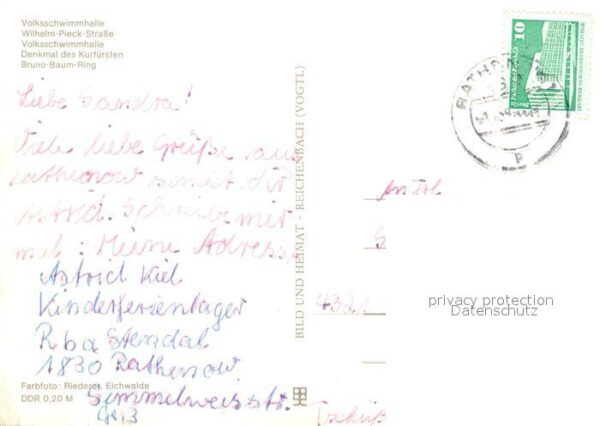 Volksschwimmhalle
Wilhelm-Pieck-Straße
Volksschwimmhalle
Denkmal des Kurfürsten
Bruno-Baum-Ring
Liebe Sandra!
Viele liebe Grüße aus
Rathenow sendet dir
Astrid. Schreibe mir
mal: Meine Adresse
Astrid Kiel
Kinderferienlager
Rba Stendal
1830 Rathenow
Semmelweisstr.
Farbfoto: Riederer, Eichwalde
DDR 0,20 M
BILD UND HEIMAT · REICHENBACH (VOGTL)
10
RATHEN
P
S
432
privacy protection
Datenschutz
Tschüß